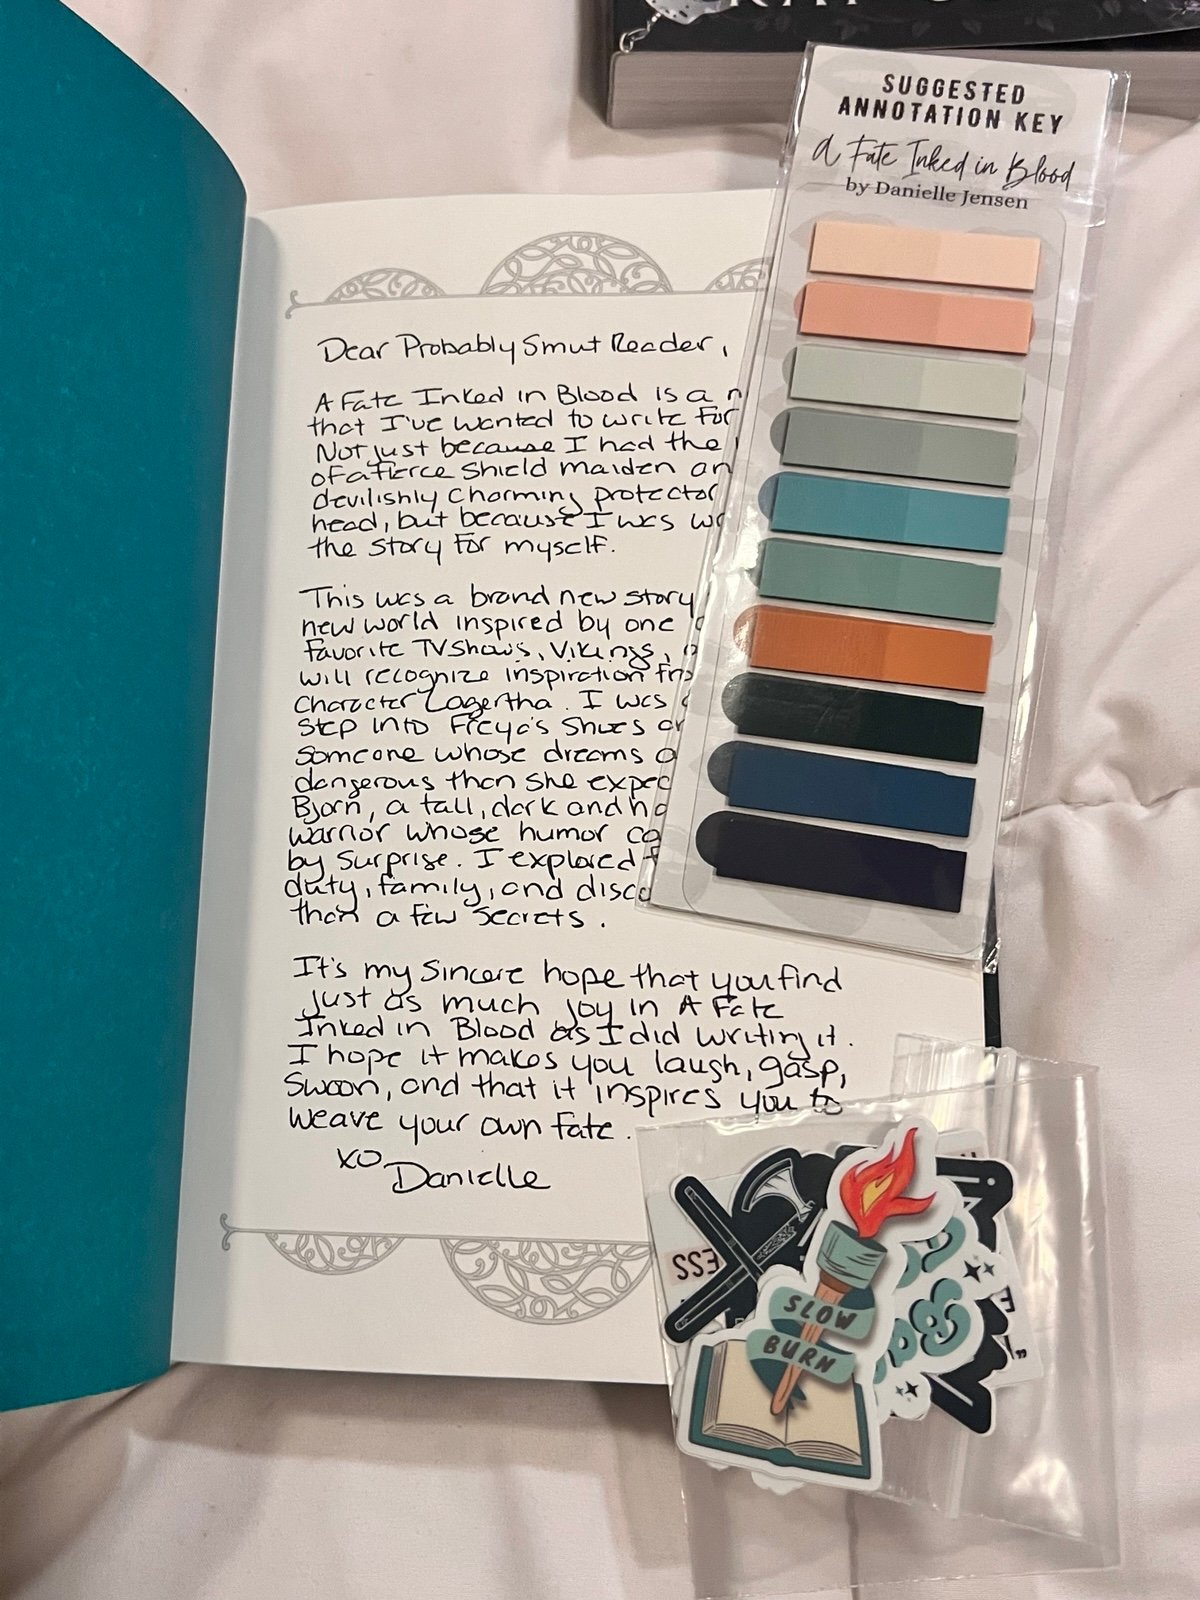 SUGGESTED
ANNOTATION KEY
A Fate Inked in Blood
by Danielle Jensen
Dear Probably Smut Reader,
A Fate Inked in Blood is a
that I've wanted to write for
Not just because I had the
of a fierce shield maiden
devilishly charming protector
head, but because I was
the story for myself.
This was a brand new story
new world inspired by one
favorite TV shows, Vikings,
will recognize inspiration
character Lagertha. I was
step into Freya's shoes
someone whose dreams
dangerous than she
Bjorn, a tall, dark and
warrior whose humor
by surprise. I explored
duty, family, and
than a few secrets.
It's my sincere hope that you find
just as much joy in A Fate
Inked in Blood as I did writing it.
I hope it makes you laugh, gasp,
swoon, and that it inspires you to
weave your own fate.
XO
Danielle
ESS
SLOW
BURN